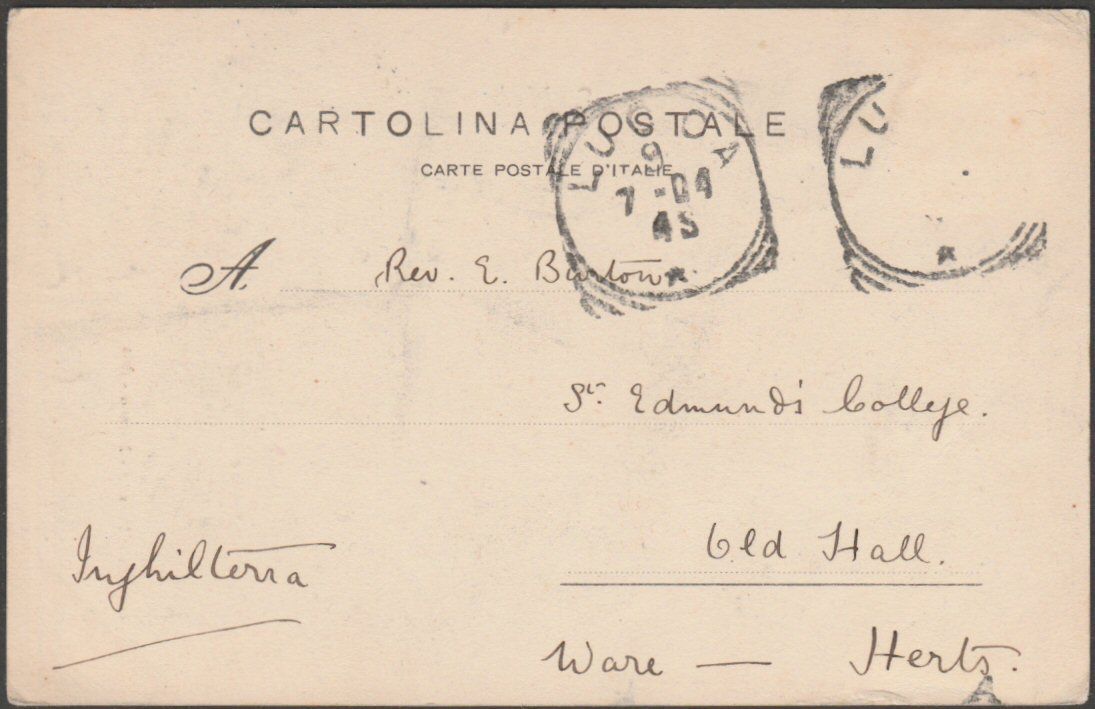 CARTOLINA POSTALE
CARTE POSTALE D'ITALIE
LUCCA
9
7 - 04
4S
LU
A Rev. E. Burton
St. Edmund's College.
Old Hall.
Inghilterra
Ware — Herts.